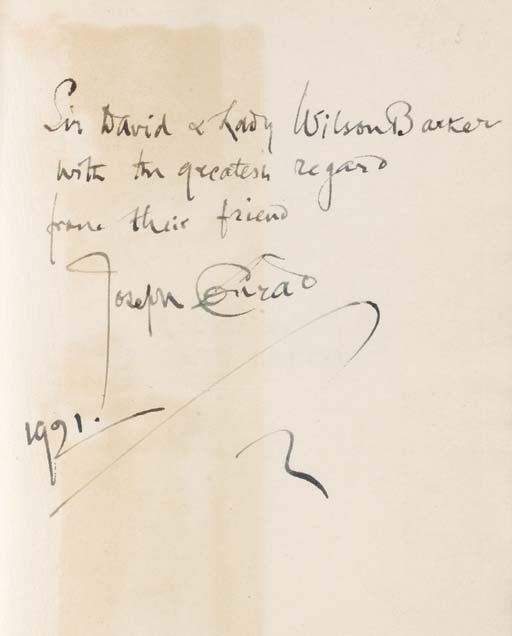 Sir David & Lady Wilson Barker
with the greatest regard
from their friend
Joseph Conrad
1921.